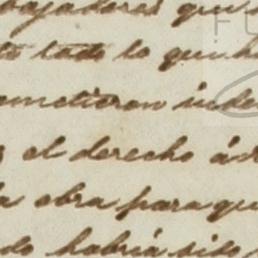 bajadores que
to todo lo que h
ometieron inde
el derecho á
la obra para qu
do habría sido